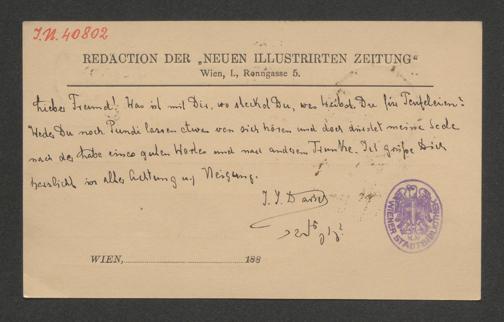 I.N. 40802
REDACTION DER „NEUEN ILLUSTRIRTEN ZEITUNG“
Wien, I., Renngasse 5.
Lieber Freund! Was ist mit Dir, wo steckst Du, was treibst Du für Teufeleien?
Weder Du noch Pundi lassen etwas von sich hören und doch dürstet meine Seele
nach der Labe eines guten Wortes und nach anderem Trunke. Ich grüße Dich
herzlichst in aller Achtung u. Neigung.
J. J. David
WIENER STADTBIBLIOTHEK
WIEN, 188